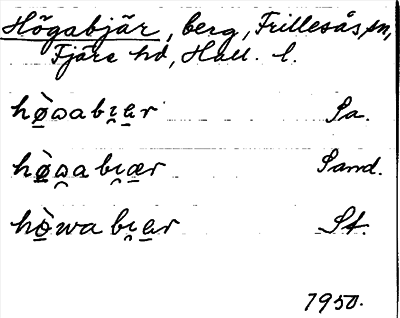 Högabjär, berg, Frillesås sn,
Fjäre hd, Hall. l.
hø̀ɷabɪ̯ær Sa.
hø̀ɷ̯abɪ̯ær Sand.
hø̀wabɪ̯ær St.
1950.